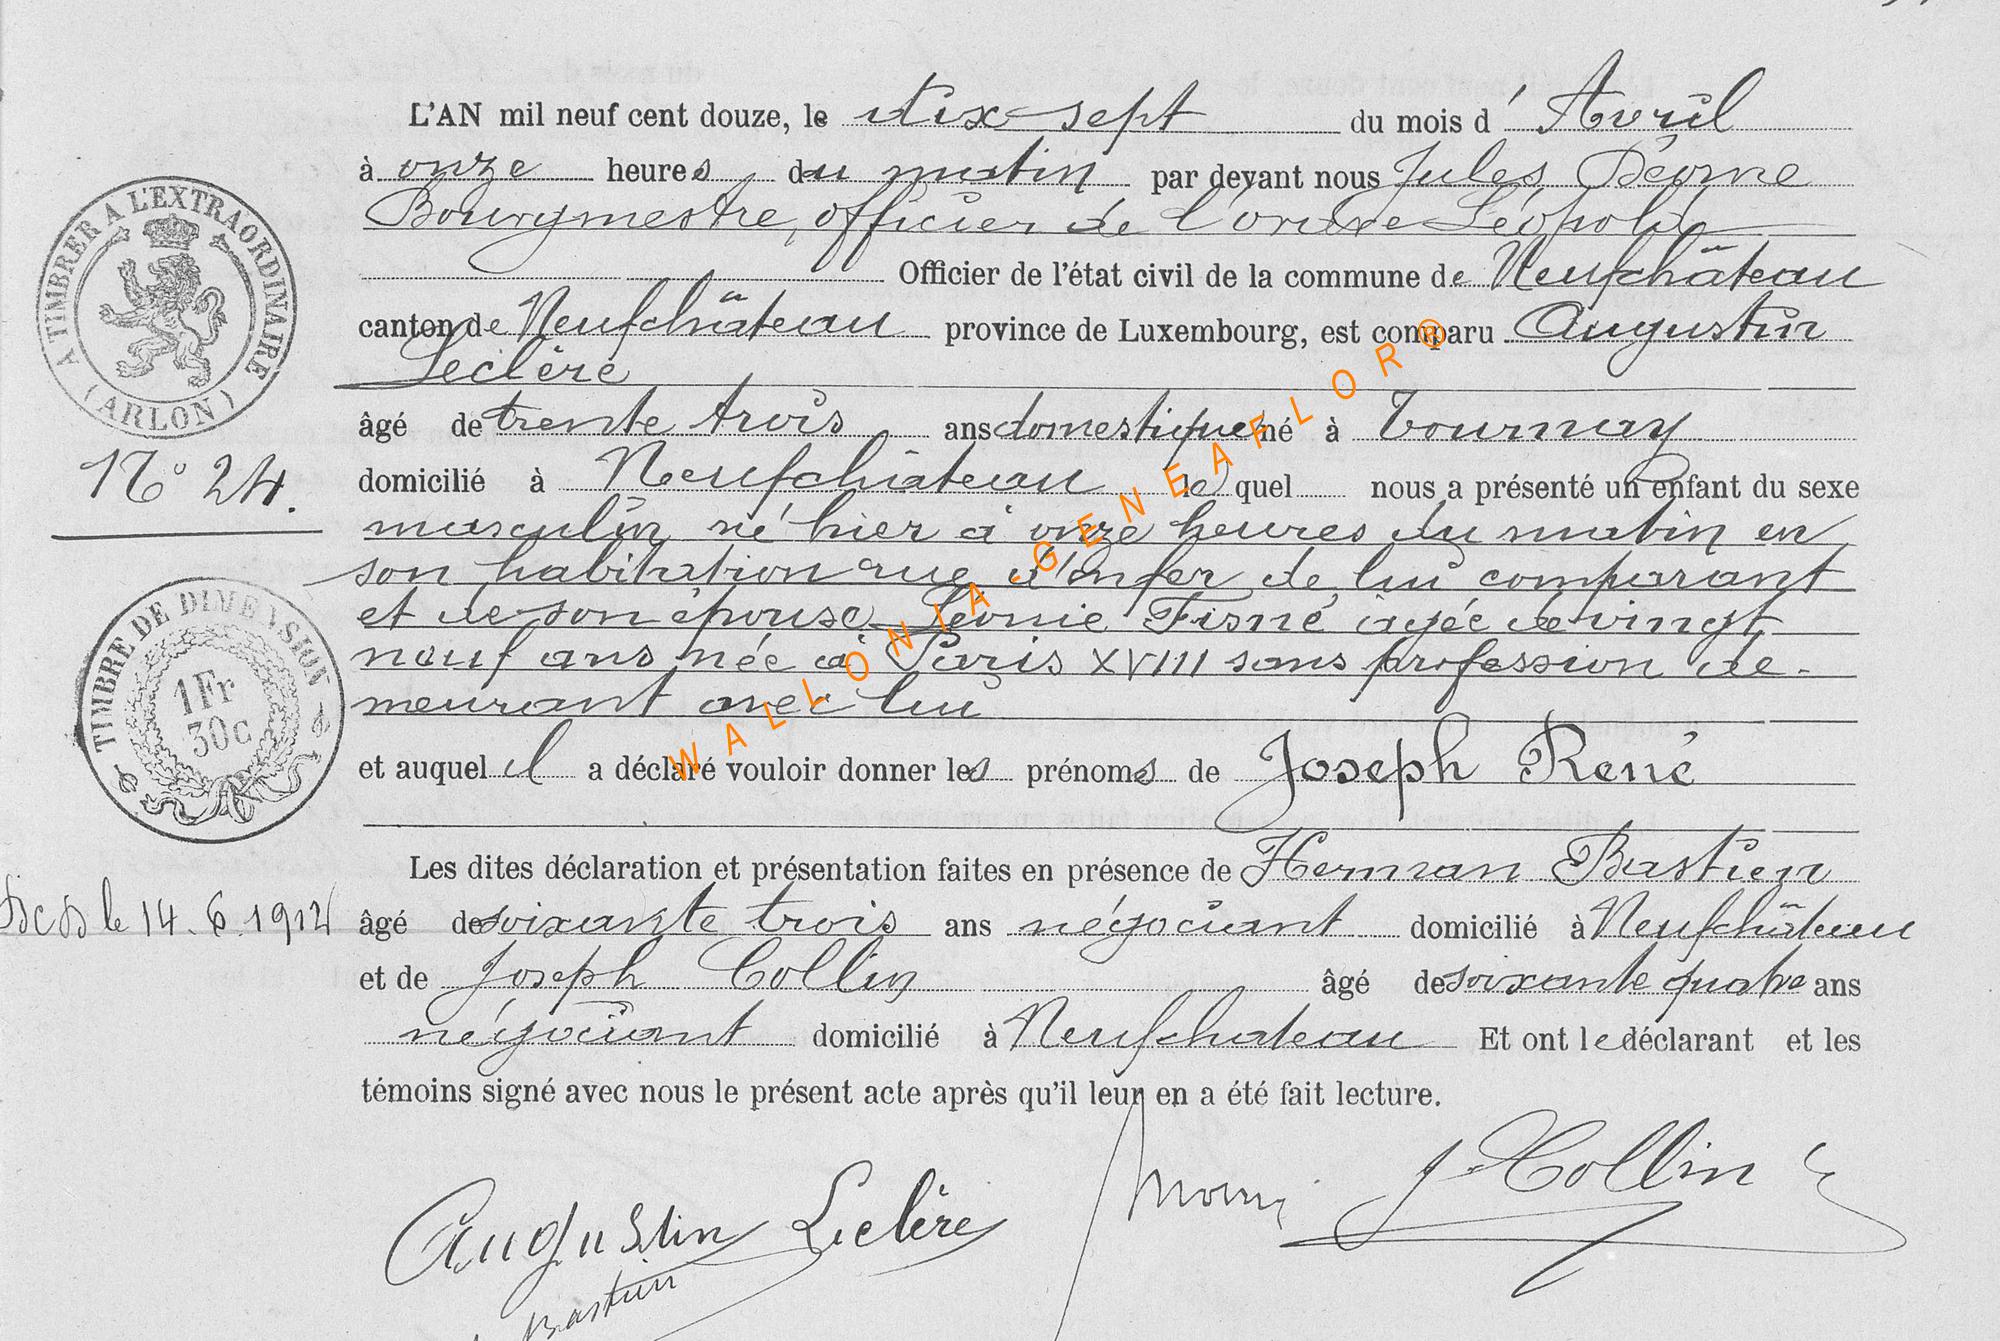 L'AN mil neuf cent douze, le dix sept du mois d'Avril
à onze heures du matin par devant nous Jules
Bourgmestre, officier de l'ordre Léopold
Officier de l'état civil de la commune de Neufchâteau
canton de Neufchâteau province de Luxembourg, est comparu Augustin
Leclère
âgé de trente trois ans domestique né à Tournay
domicilié à Neufchâteau lequel nous a présenté un enfant du sexe
masculin né hier à onze heures du matin en
son habitation rue d'enfer de lui comparant
et de son épouse Léonie Fisné âgée de vingt
neuf ans née à Paris XVIII sans profession de-
meurant avec lui
et auquel il a déclaré vouloir donner les prénoms de Joseph René
Les dites déclaration et présentation faites en présence de Herman Bastien
âgé de soixante trois ans négociant domicilié à Neufchâteau
et de Joseph Collin âgé de soixante quatre ans
négociant domicilié à Neufchateau Et ont le déclarant et les
témoins signé avec nous le présent acte après qu'il leur en a été fait lecture.
Augustin Leclère
J Collin
Bastien
A TIMBRER A L'EXTRAORDINAIRE
(ARLON)
N° 24.
TIMBRE DE DIMENSION
1Fr
30c
le 14.6.1912
WALLONIA-GENEAFLOR®